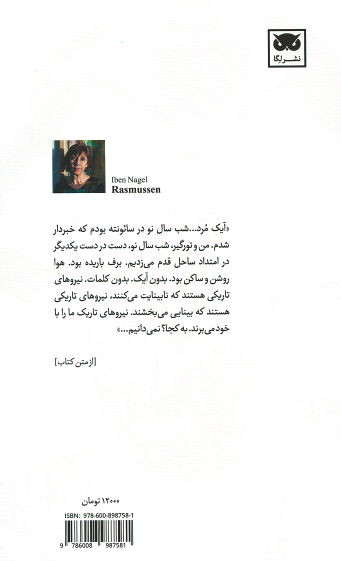 نشر لگا
Iben Nagel
Rasmussen
«آیک مُرد...شب سال نو در سائونته بودم که خبردار
شدم. من و تورگیر، شب سال نو، دست در دست یکدیگر
در امتداد ساحل قدم می‌زدیم. برف باریده بود. هوا
روشن و ساکن بود. بدون آیک. بدون کلمات. نیروهای
تاریکی هستند که نابینایت می‌کنند، نیروهای تاریکی
هستند که بینایی می‌بخشند. نیروهای تاریک ما را با
خود می‌برند. به کجا؟ نمی‌دانیم...»
[از متن کتاب]
۱۲۰۰۰ تومان
ISBN: 978-600-898758-1
9 786008 987581